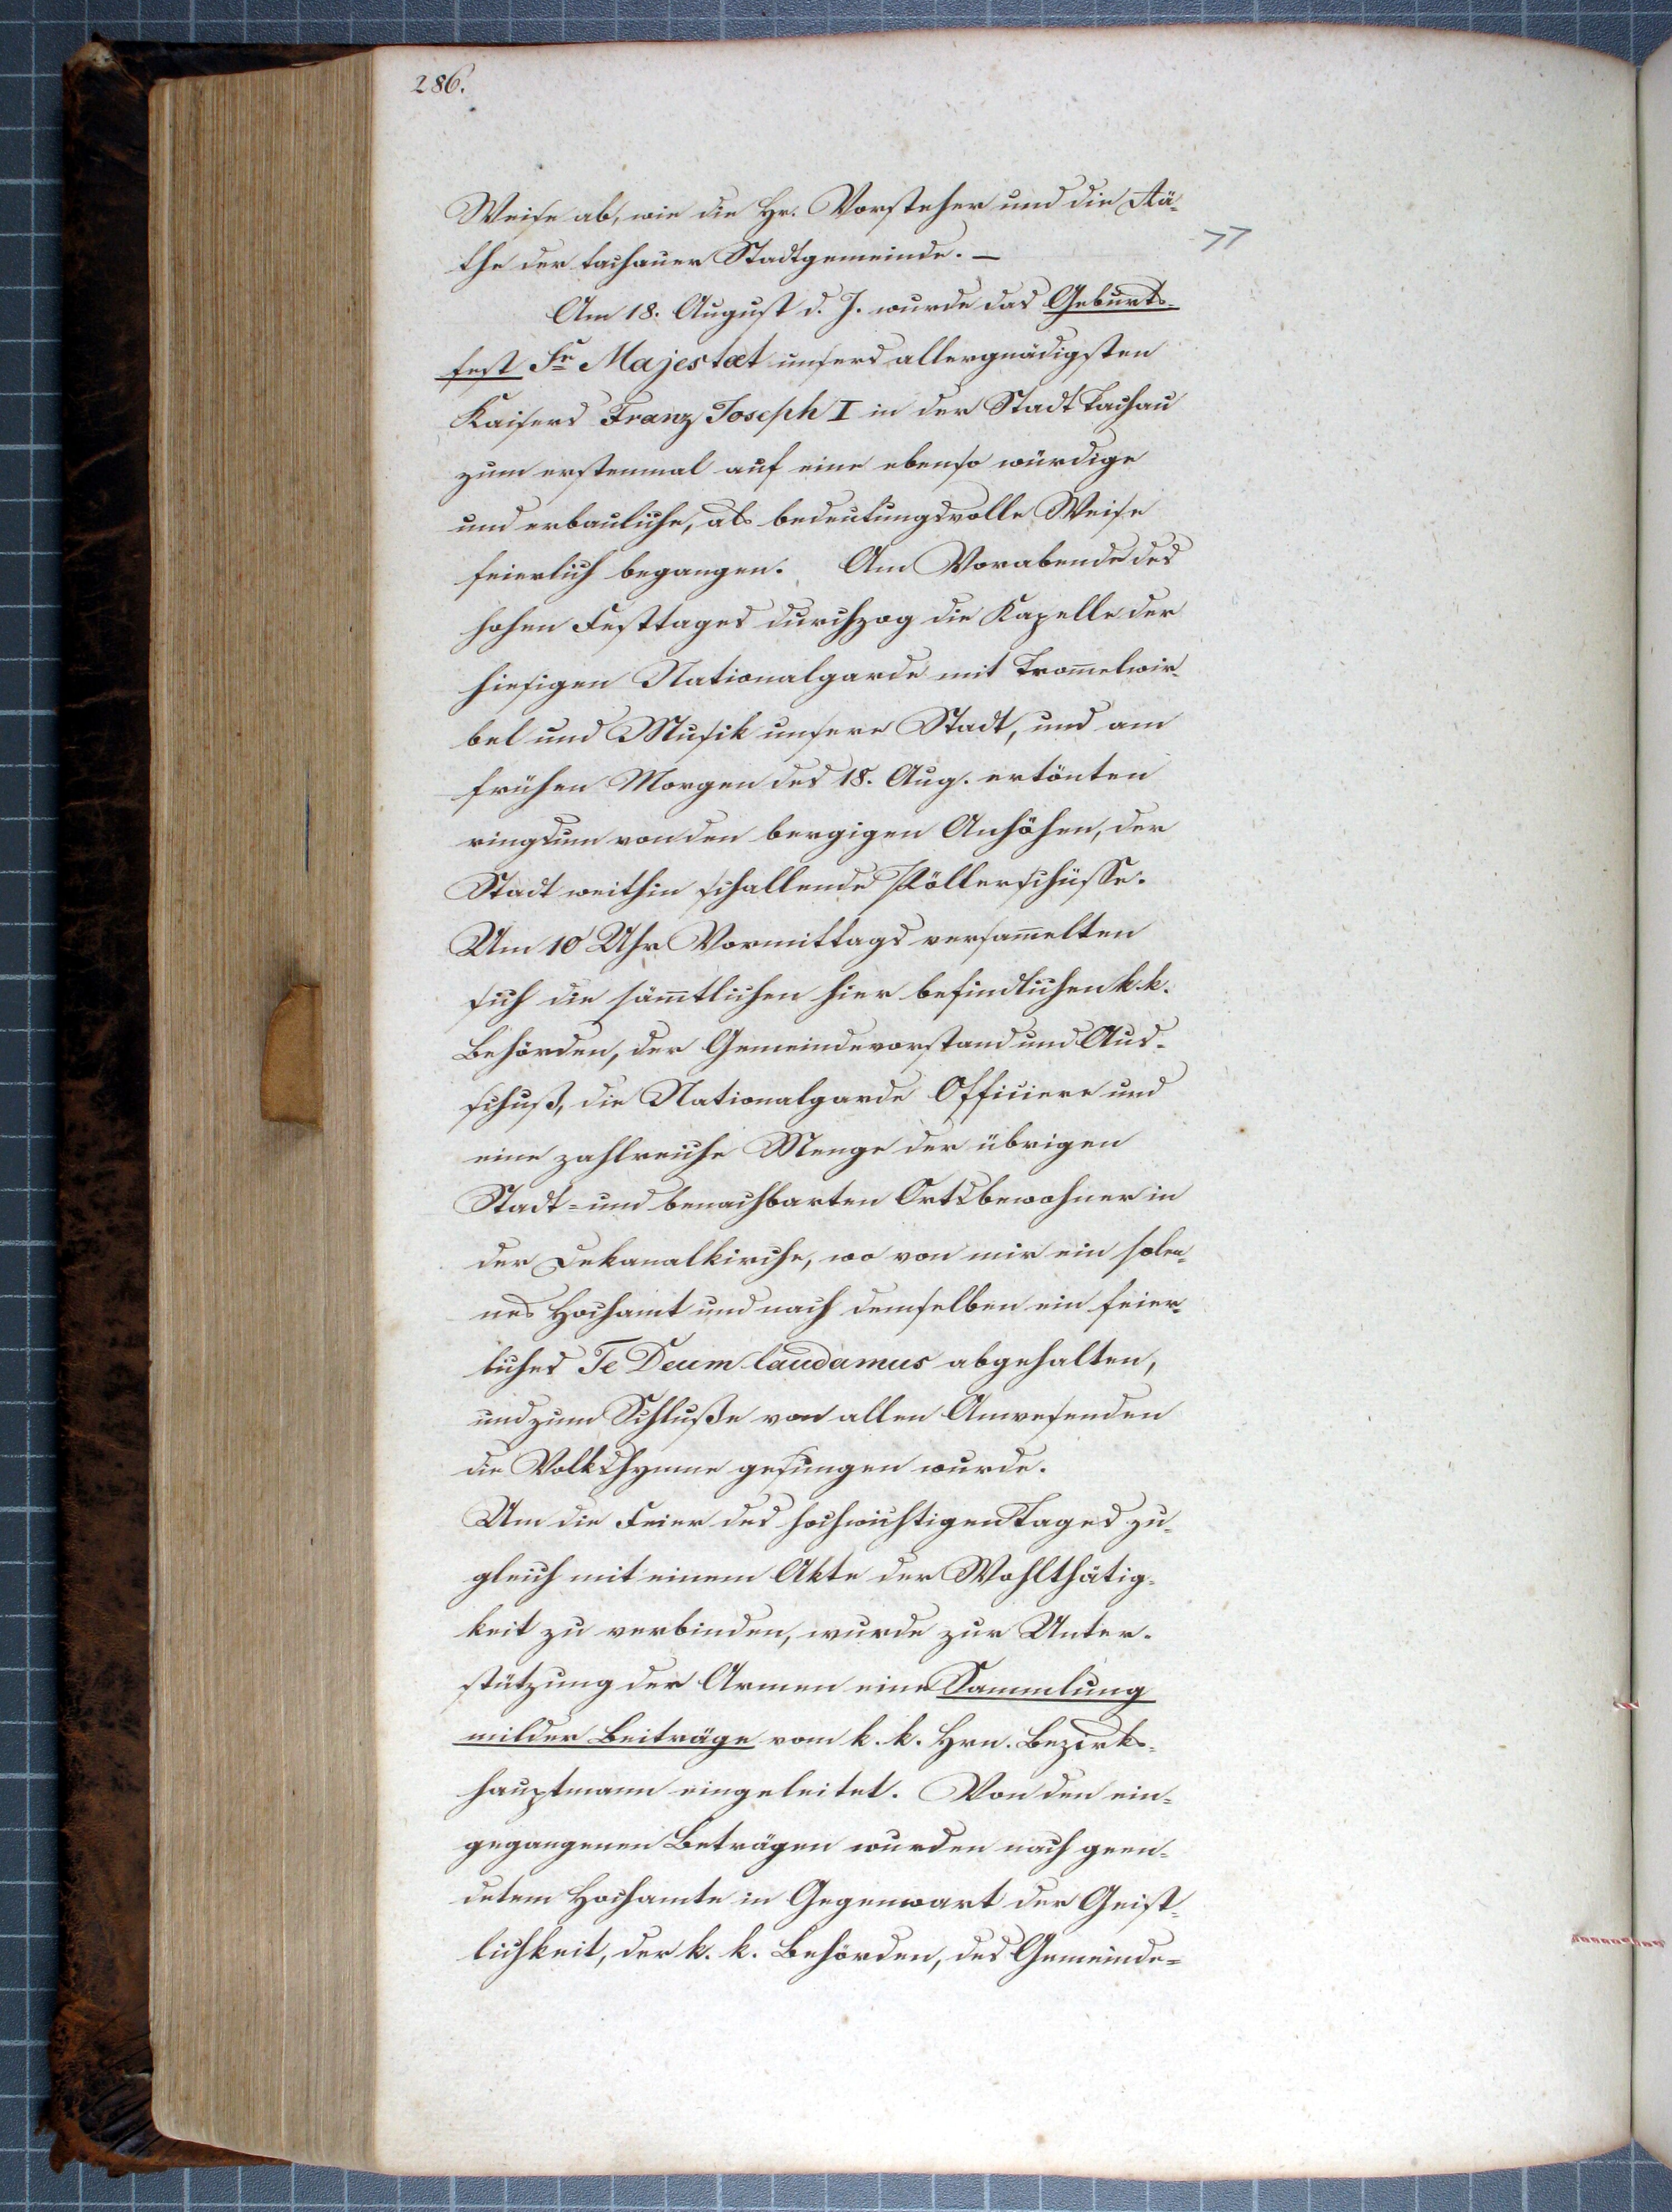 286.
Weise ab, wie die Hr. Vorsteher und die Rä-
the der tachauer Stadtgemeinde. —
>>
Am 18. August d. J. wurde das Geburts-
fest Sr Majestæt unsers allergnädigsten
Kaisers Franz Joseph I in der Stadt Tachau
zum erstenmal auf eine ebenso würdige
und erbauliche, als bedeutungsvolle Weise
feierlich begangen. Am Vorabende des
hohen Festtages durchzog die Kapelle der
hiesigen Nationalgarde mit Trom̄elwir-
bel und Musik unsere Stadt, und am
frühen Morgen des 18. Aug. ertönten
ringsum von den bergigen Anhöhen, der
Stadt weithin schallende Pöllerschüsse.
Um 10 Uhr Vormittags versam̄elten
sich die säm̄tlichen hier befindlichen k. k.
Behörden, der Gemeindevorstand und Aus-
schuß, die Nationalgarde Officiere und
eine zahlreiche Menge der übrigen
Stadt- und benachbarten Ortsbewohner in
der Dekanalkirche, wo von mir ein solen-
nes Hochamt und nach demselben ein feier-
liches Te Deum laudamus abgehalten,
und zum Schluße von allen Anwesenden
die Volkshymne gesungen wurde.
Um die Feier des hochwichtigen Tages zu-
gleich mit einem Akte der Wohlthätig-
keit zu verbinden, wurde zur Unter-
stützung der Armen eine Sammlung
milder Beiträge vom k. k. Hrn. Bezirks-
hauptmann eingeleitet. Von den ein-
gegangenen Beträgen wurden nach geen-
detem Hochamte in Gegenwart der Geist-
lichkeit, der k. k. Behörden, des Gemeinde-